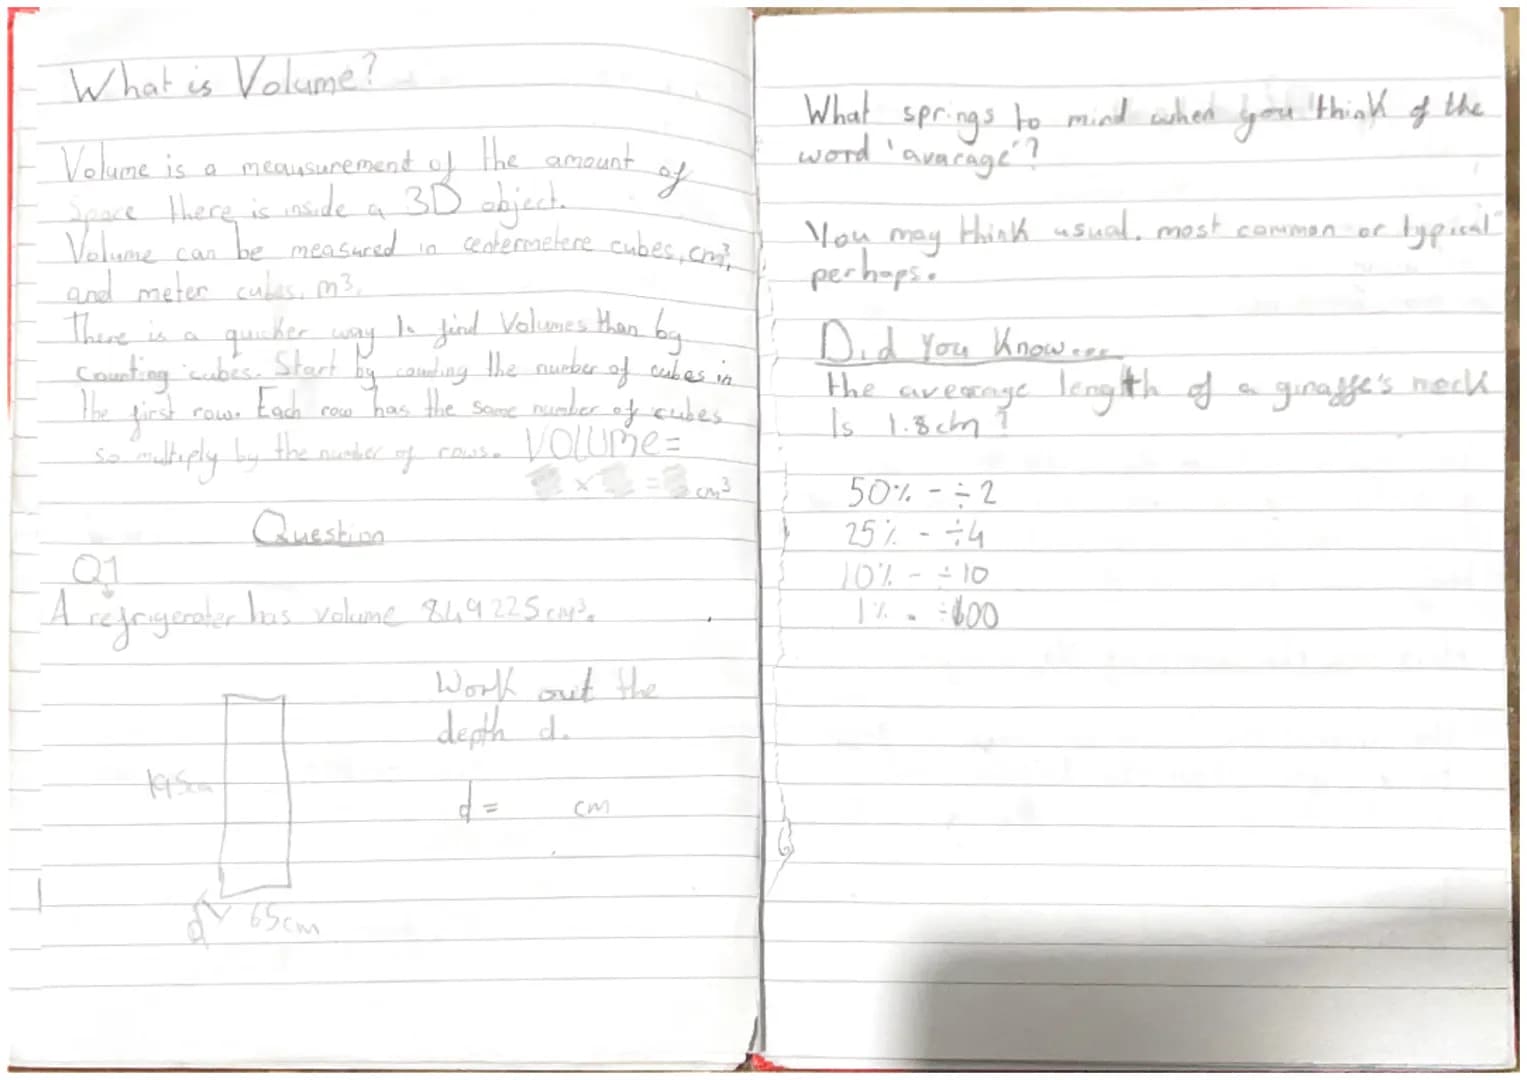 What is Volume?
Volume is a meausurement of the amount of
Space there is inside a 3D object.
Volume can be measured in centermetere cubes, cm³,
and meter cubes, m³.
There is a quicker way to find Volumes than by
Counting cubes. Start by counting the number of cubes in
the first row. Each row has the same number of cubes
so multiply by the number of rows. VOLUME=
× = cm³
Question
Q1
A refrigerater has volume 849225cm³.
Work out the
depth d.
195cm
d = cm
d 65cm
What springs to mind when you think of the
word 'avarage'?
You may think usual, most common or typical
perhaps.
Did You Know....
the averange length of a giraffe's neck
Is 1.8cm?
50% - ÷2
25% - ÷4
10% - ÷10
1% - ÷100